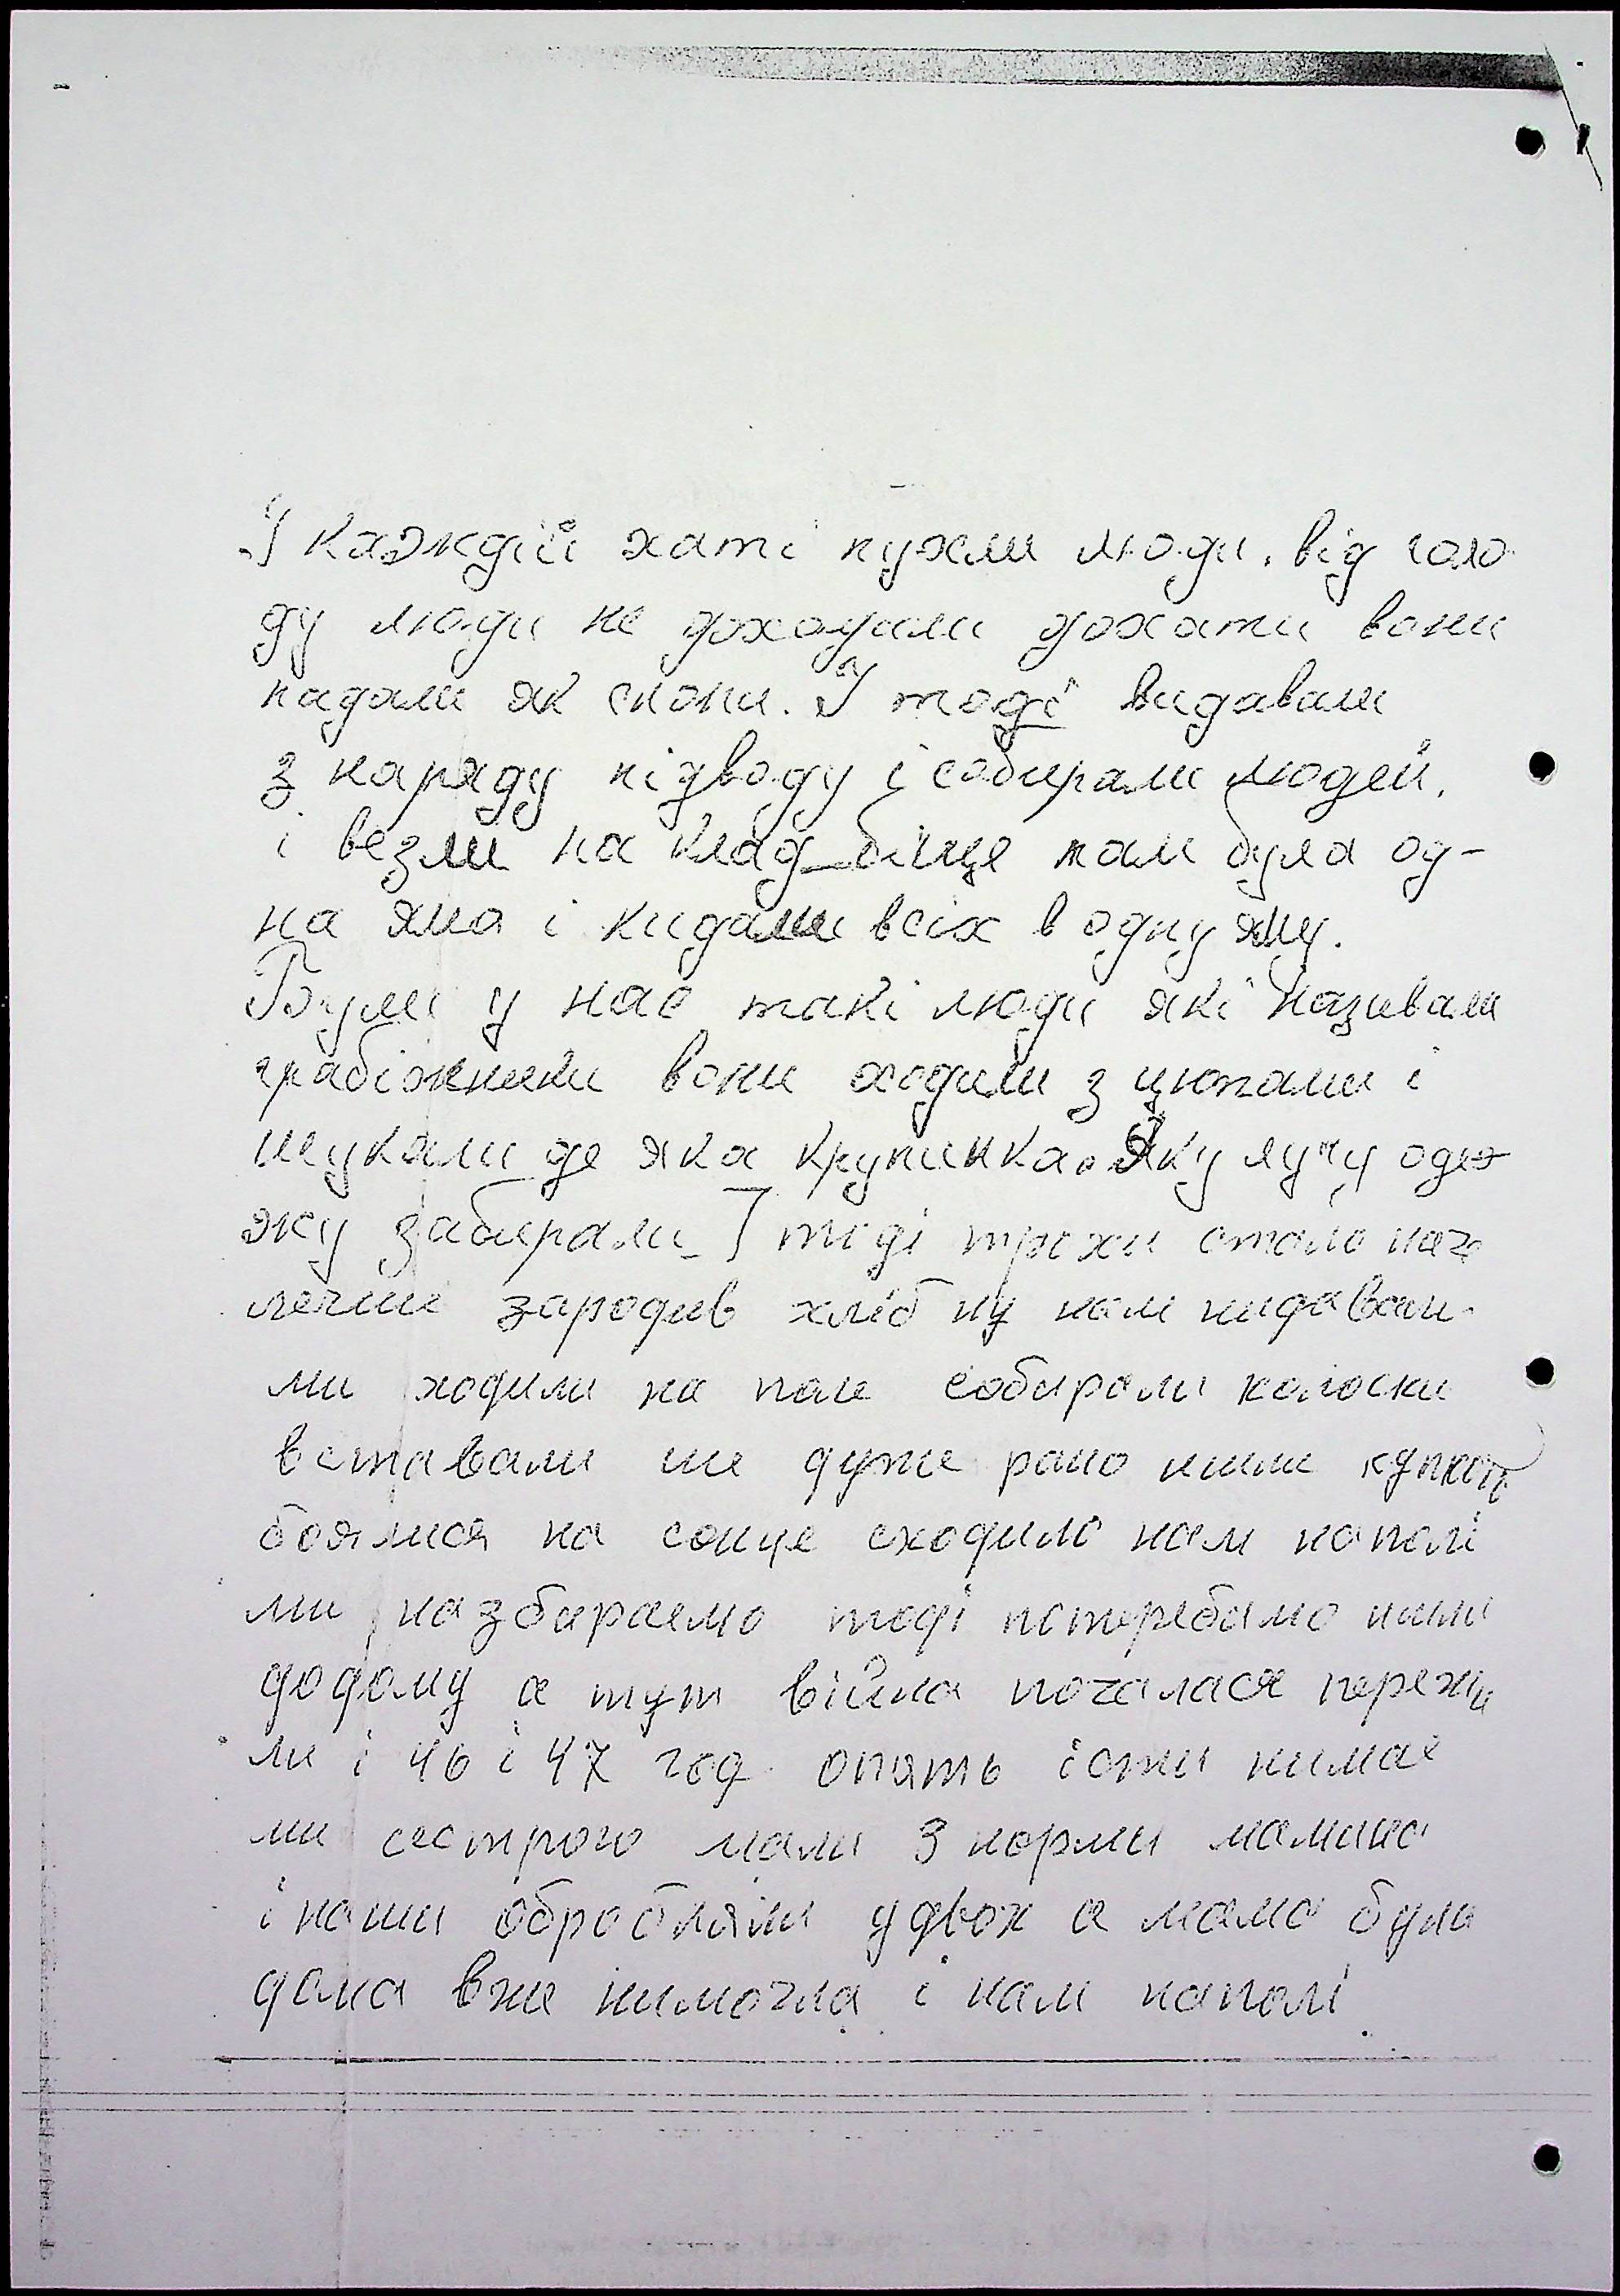 У каждій хаті пухли люди. від голо
ду люди не доходили дохати вони
падали як снопи. І тоді видавали
з наряду підводу і собирали людей.
і везли на клад-біще там була од-
на яма і кидали всіх в одну яму.
Були у нас такі люди які називали
грабіжники вони ходили з щюпами і
шукали де яка крупинка. Яку лучу одеж
жу забирали_ І тоді трохи стало
легше зародив хліб ну нам нидавали
ми ходили на поле собирали колоски
вставали ше дуже рано ишли
боялися на сонце сходило нам наполі
ми назбираємо тоді потеребимо ишли
додому а тут війна почалася пережи
ли і 46 і 47 год опять істи нимає
ми сестрою мали 3 норми мамина
і наши обробляли удвох а мама була
дома вже нимогла і нам наполі